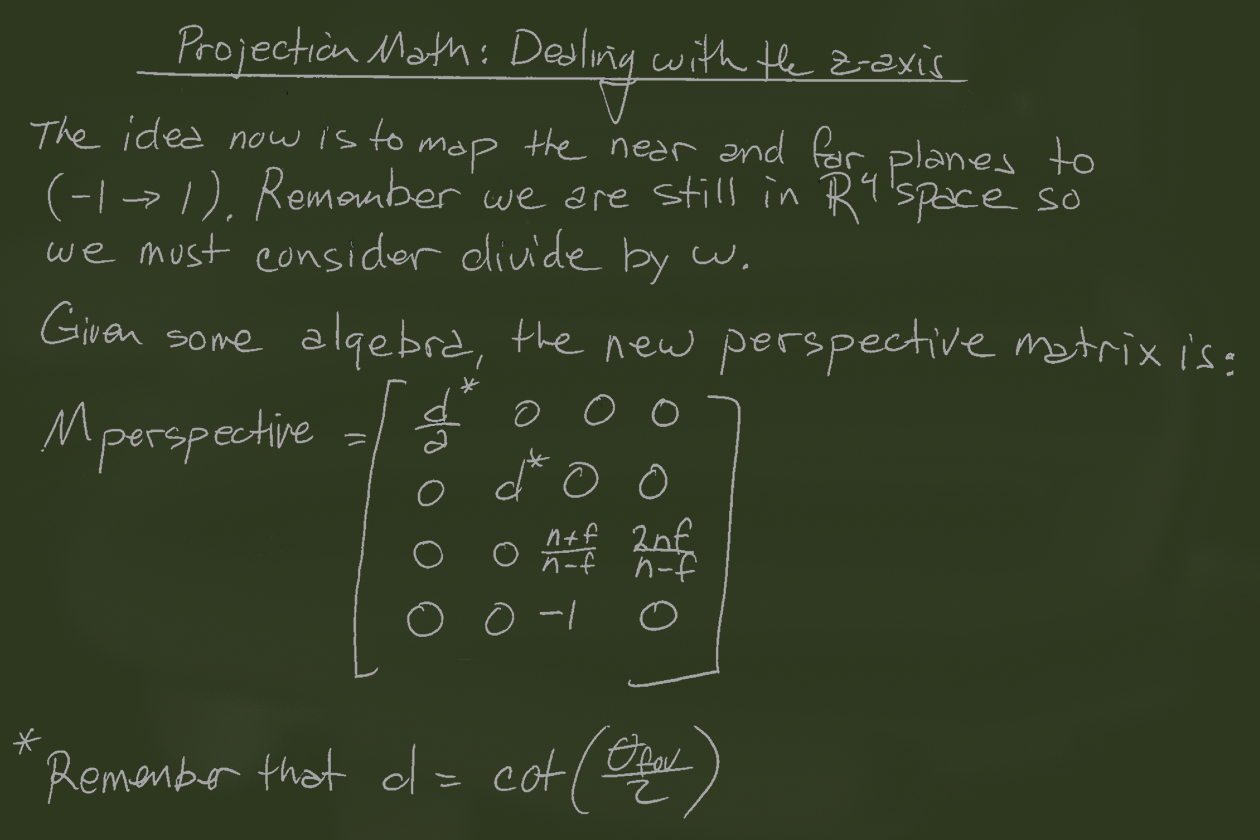 Projection Math: Dealing with the z-axis
The idea now is to map the near and far planes to
(-1 → 1). Remember we are still in R⁴ space so
we must consider divide by w.
Given some algebra, the new perspective matrix is:
M perspective = [ d/a * 0 0 0
0 d* 0 0
0 0 n+f/n-f 2nf/n-f
0 0 -1 0 ]
* Remember that d = cot(θfov/2)